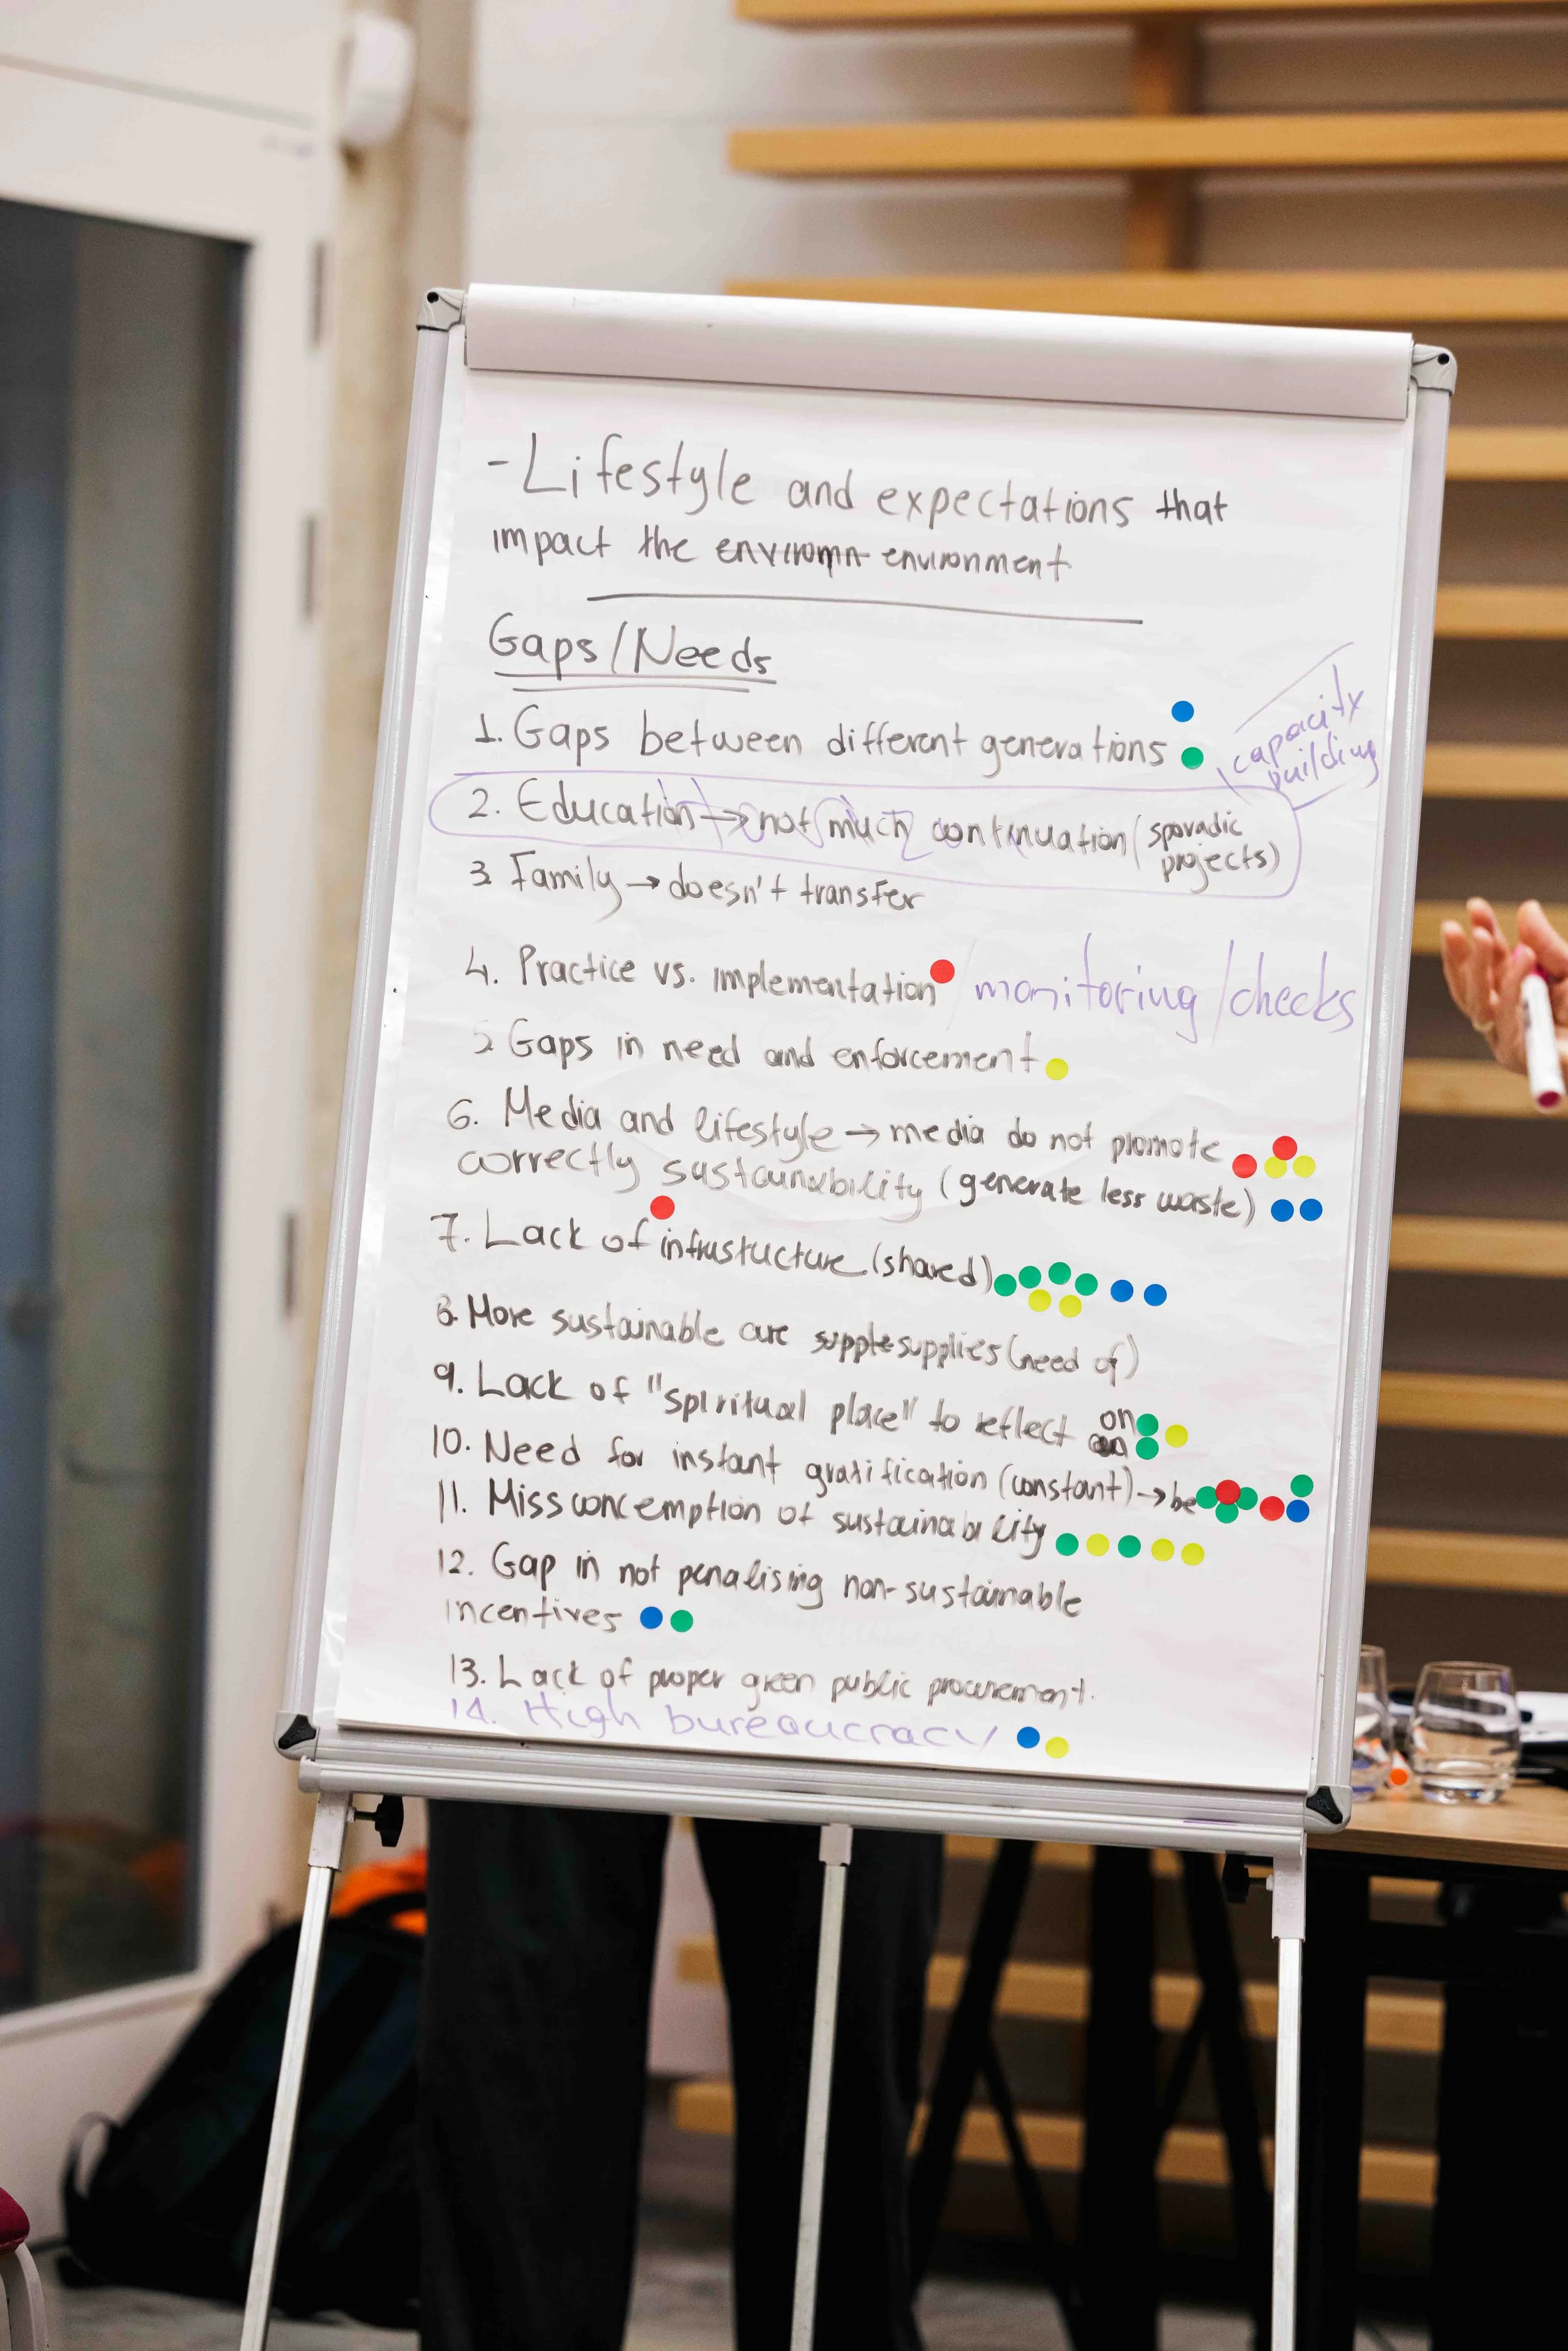 - Lifestyle and expectations that
impact the enviromn environment
Gaps/Needs
1. Gaps between different generations
capacity
building
2. Education → not much continuation (sporadic
projects)
3 Family → doesn't transfer
4. Practice vs. implementation / monitoring / checks
5 Gaps in need and enforcement
6. Media and lifestyle → media do not promote
correctly sustainability (generate less waste)
7. Lack of infrustucture (shared)
8. More sustainable are supple supplies (need of)
9. Lack of "spiritual place" to reflect on
10. Need for instant gratification (constant) → be
11. Miss concemption of sustainability
12. Gap in not penalising non-sustainable
incentives
13. Lack of proper green public procurement.
14. High bureaucracy